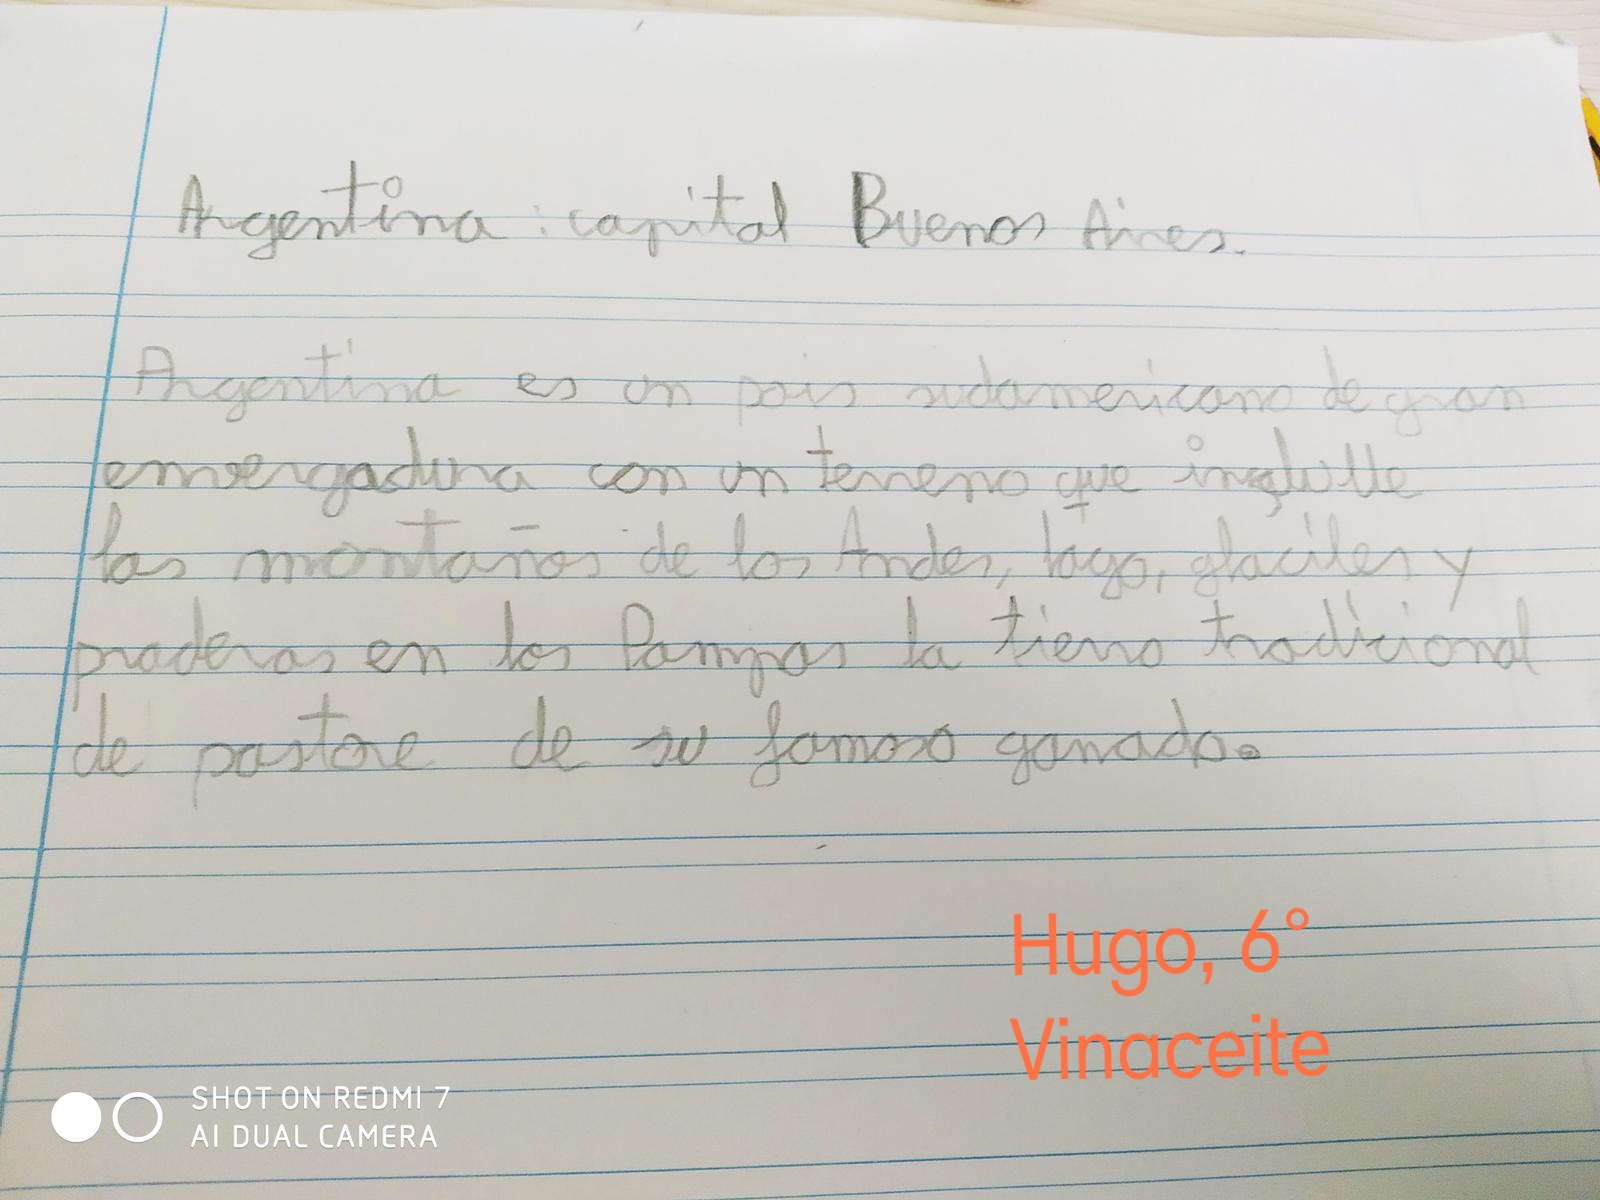 Argentina: capital Buenos Aires.
Argentina es un pais sudamericano de gran
envergadura con un terreno que inglulle
las montañas de los Andes, lago, glaciles y
praderas en los Pampas la tierra tradicional
de pastore de su famoso ganado.
Hugo, 6°
Vinaceite
SHOT ON REDMI 7
AI DUAL CAMERA